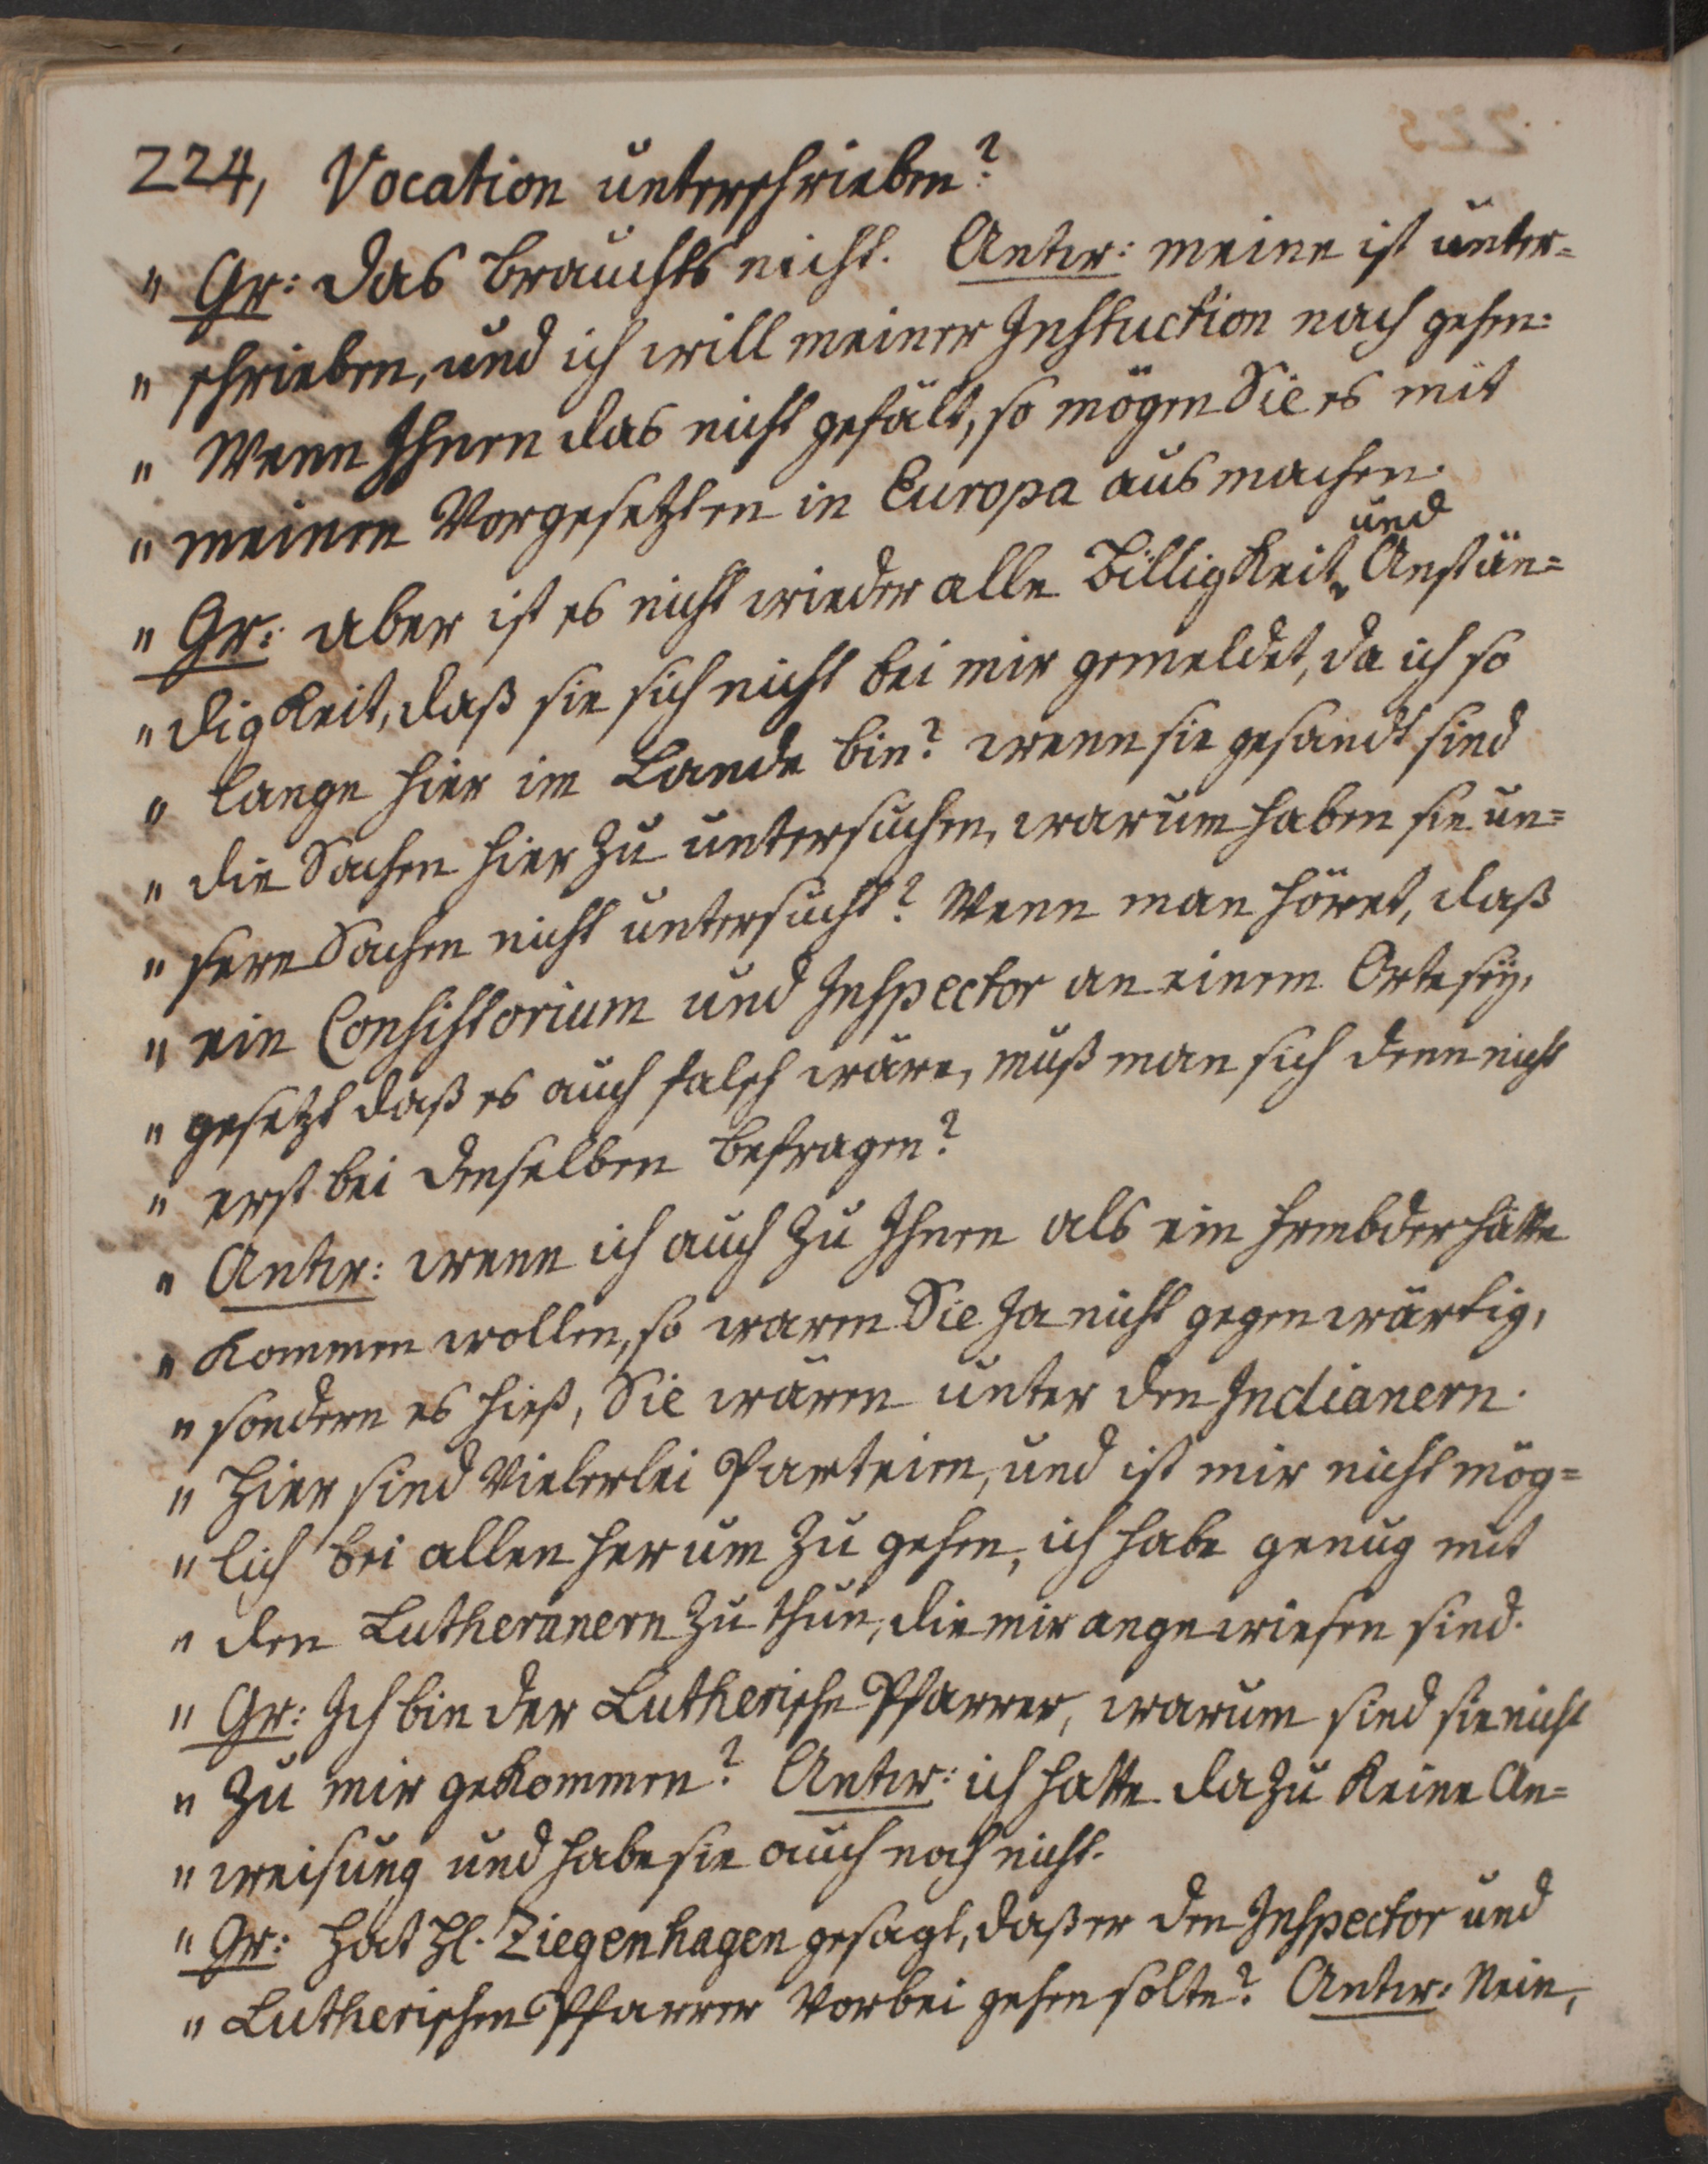 224, Vocation unterschrieben?
" Gr: das brauchts nicht. Antw: meine ist unter=
" schrieben, und ich will meiner Instuction nach gehen:
" Wenn Ihnen das nicht gefält, so mögen Sie es mit
" meinen Vorgesetzten in Europa ausmachen.
und
" Gr: aber ist es nicht wieder alle Billigkeit Anstän=
" digkeit, daß sie sich nicht bei mir gemeldet, da ich so
" lange hier im Lande bin? wenn sie gesandt sind
" die Sachen hier zu untersuchen, warum haben sie un=
" sere Sachen nicht untersucht? Wenn man höret, daß
" ein Consistorium und Inspector an einem Orte sey,
" gesetzt daß es auch falsch wäre, muß man sich denn nicht
" erst bei denselben befragen?
" Antw: wenn ich auch zu Ihnen als ein frembder hätte
" kommen wollen, so waren Sie ja nicht gegenwärtig,
" sondern es hieß, Sie wären unter den Indianern.
" Hier sind Vielerlei Parteien, und ist mir nicht mög=
" lich bei allen herum zu gehen, ich habe genug mit
" den Lutheranern zu thun, die mir angewiesen sind.
" Gr: Ich bin der Lutherische Pfarrer, warum sind sie nicht
" zu mir gekommen? Antw: ich hatte dazu keine An=
" weisung und habe sie auch noch nicht.
" Gr: Hat Hl. Ziegenhagen gesagt, daß er den Inspector und
" Lutherischen Pfarrer Vorbei gehen solte? Antw: Nein,